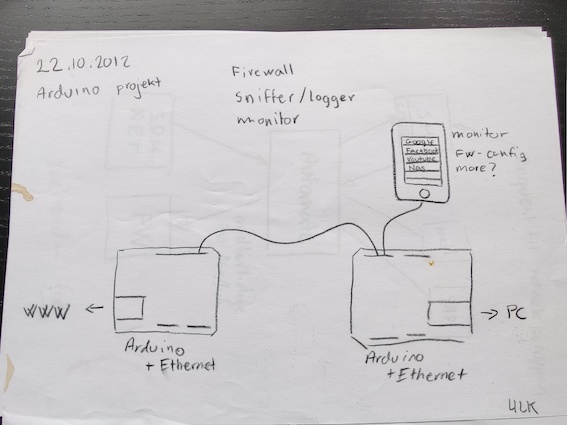 22.10.2012
Arduino projekt
Firewall
sniffer/logger
monitor
Google
Facebook
Youtube
Nas
monitor
FW-config
more?
WWW ←
→ PC
Arduino
+ Ethernet
Arduino
+ Ethernet